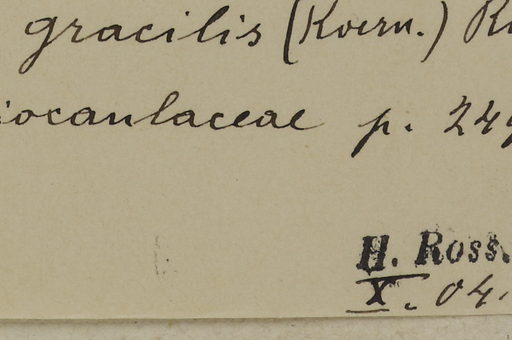 gracilis (Koern.) R
iocaulaceae p. 249
H. Ross.
X. 04.